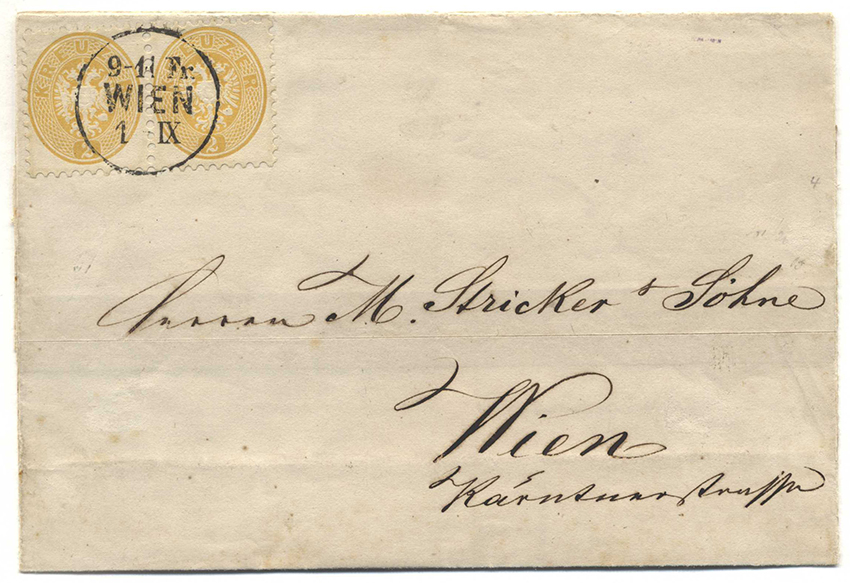 KREUZER KREUZER
2 2
9-11 Fr.
WIEN
1 IX
4
Herren M. Stricker & Söhne
Wien
Kärntnerstrasse